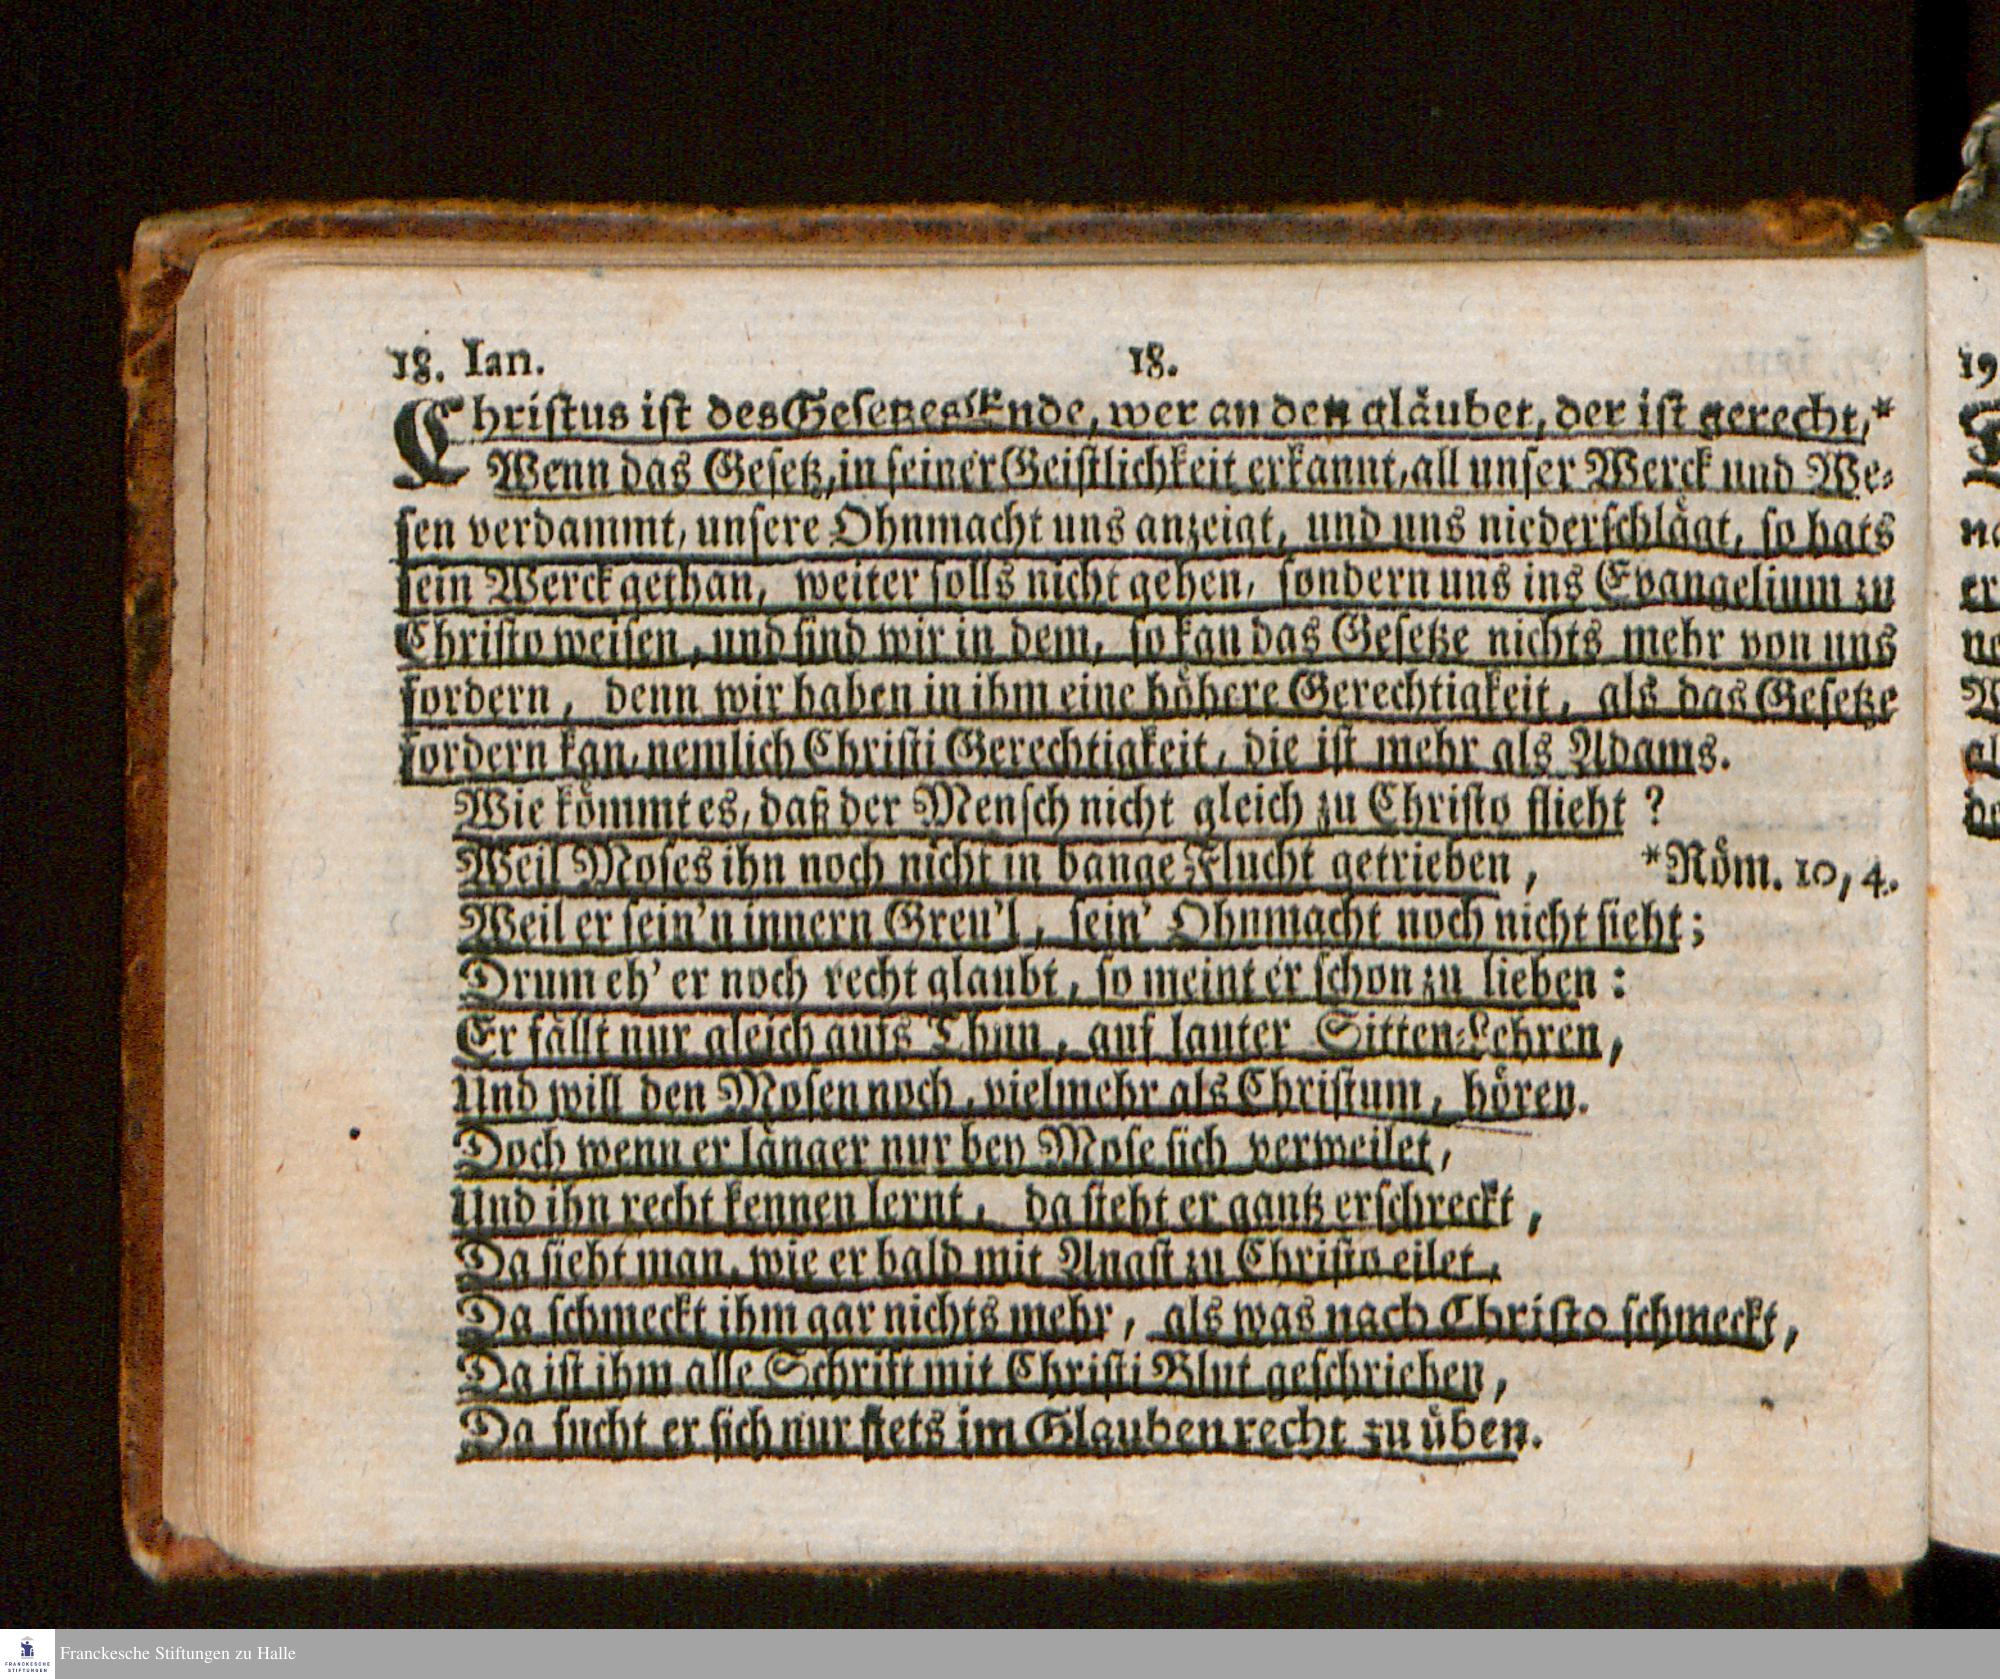 18. Ian. 18.
Christus ist des Gesetzes Ende, wer an den gläubet, der ist gerecht,*
Wenn das Gesetz, in seiner Geistlichkeit erkannt, all unser Werck und We-
sen verdammt, unsere Ohnmacht uns anzeigt, und uns niederschlägt, so hats
sein Werck gethan, weiter solls nicht gehen, sondern uns ins Evangelium zu
Christo weisen, und sind wir in dem, so kan das Gesetze nichts mehr von uns
fordern, denn wir haben in ihm eine höhere Gerechtigkeit, als das Gesetze
fordern kan, nemlich Christi Gerechtigkeit, die ist mehr als Adams.
Wie kömmt es, daß der Mensch nicht gleich zu Christo flieht?
Weil Moses ihn noch nicht in bange Flucht getrieben, *Röm. 10, 4.
Weil er sein'n innern Greu'l, sein' Ohnmacht noch nicht sieht;
Drum eh' er noch recht glaubt, so meint er schon zu lieben:
Er fällt nur gleich aufs Thun, auf lauter Sitten-Lehren,
Und will den Mosen noch, vielmehr als Christum, hören.
Doch wenn er länger nur bey Mose sich verweilet,
Und ihn recht kennen lernt, da steht er gantz erschreckt,
Da sieht man, wie er bald mit Angst zu Christo eilet,
Da schmeckt ihm gar nichts mehr, als was nach Christo schmeckt,
Da ist ihm alle Schrift mit Christi Blut geschrieben,
Da sucht er sich nur stets im Glauben recht zu üben.
19
na
er
ne
al
de
FRANCKESCHE
STIFTUNGEN
Franckesche Stiftungen zu Halle